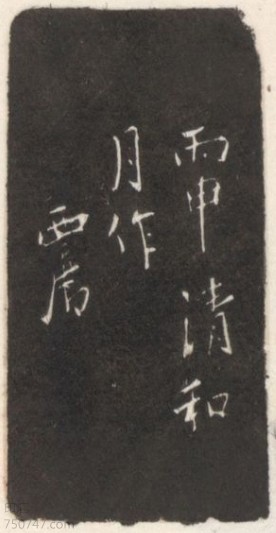 丙申清和
月作
西厓
750747.com